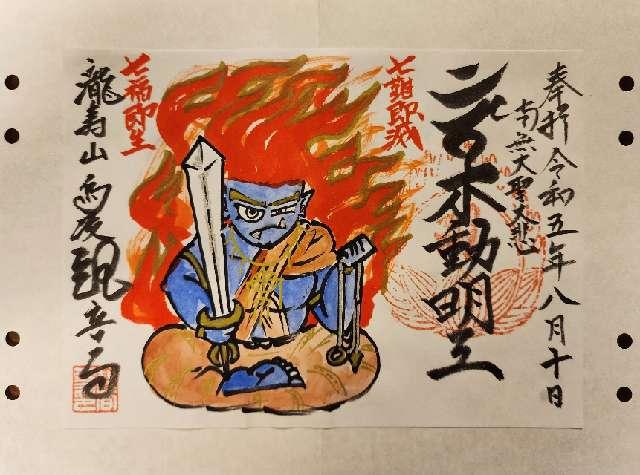 奉拝 令和五年八月十日
南無大聖大悲
不動明王
七難即滅
七福即生
瀧寿山
観音寺